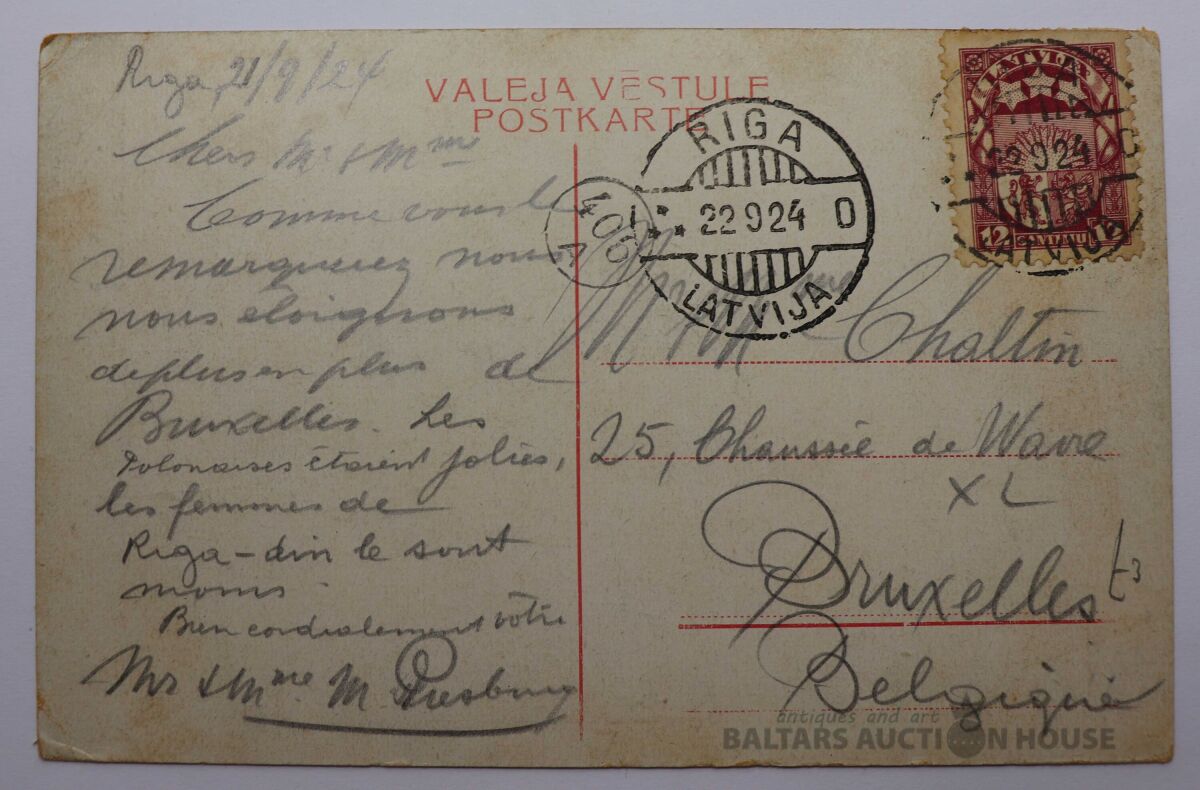 Riga, 21/9/24
VALEJA VĒSTULE
POSTKARTE
Chers Mr & Mme
Comme vous le
remarquerez nous
nous éloignons
de plus en plus de
Bruxelles. Les
Polonaises étaient jolies,
les femmes de
Riga - le sont
moins.
Bien cordialement vôtre
Mr & Mme M.
RIGA
22 9 24 D
LATVIJA
406
LATVIJA
22 9 24
LATVIJA
12
Mr & Mme Chaltin
25, Chaussée de Wavre
XL
Bruxelles
Belgique
antiques and art
BALTARS AUCTION HOUSE